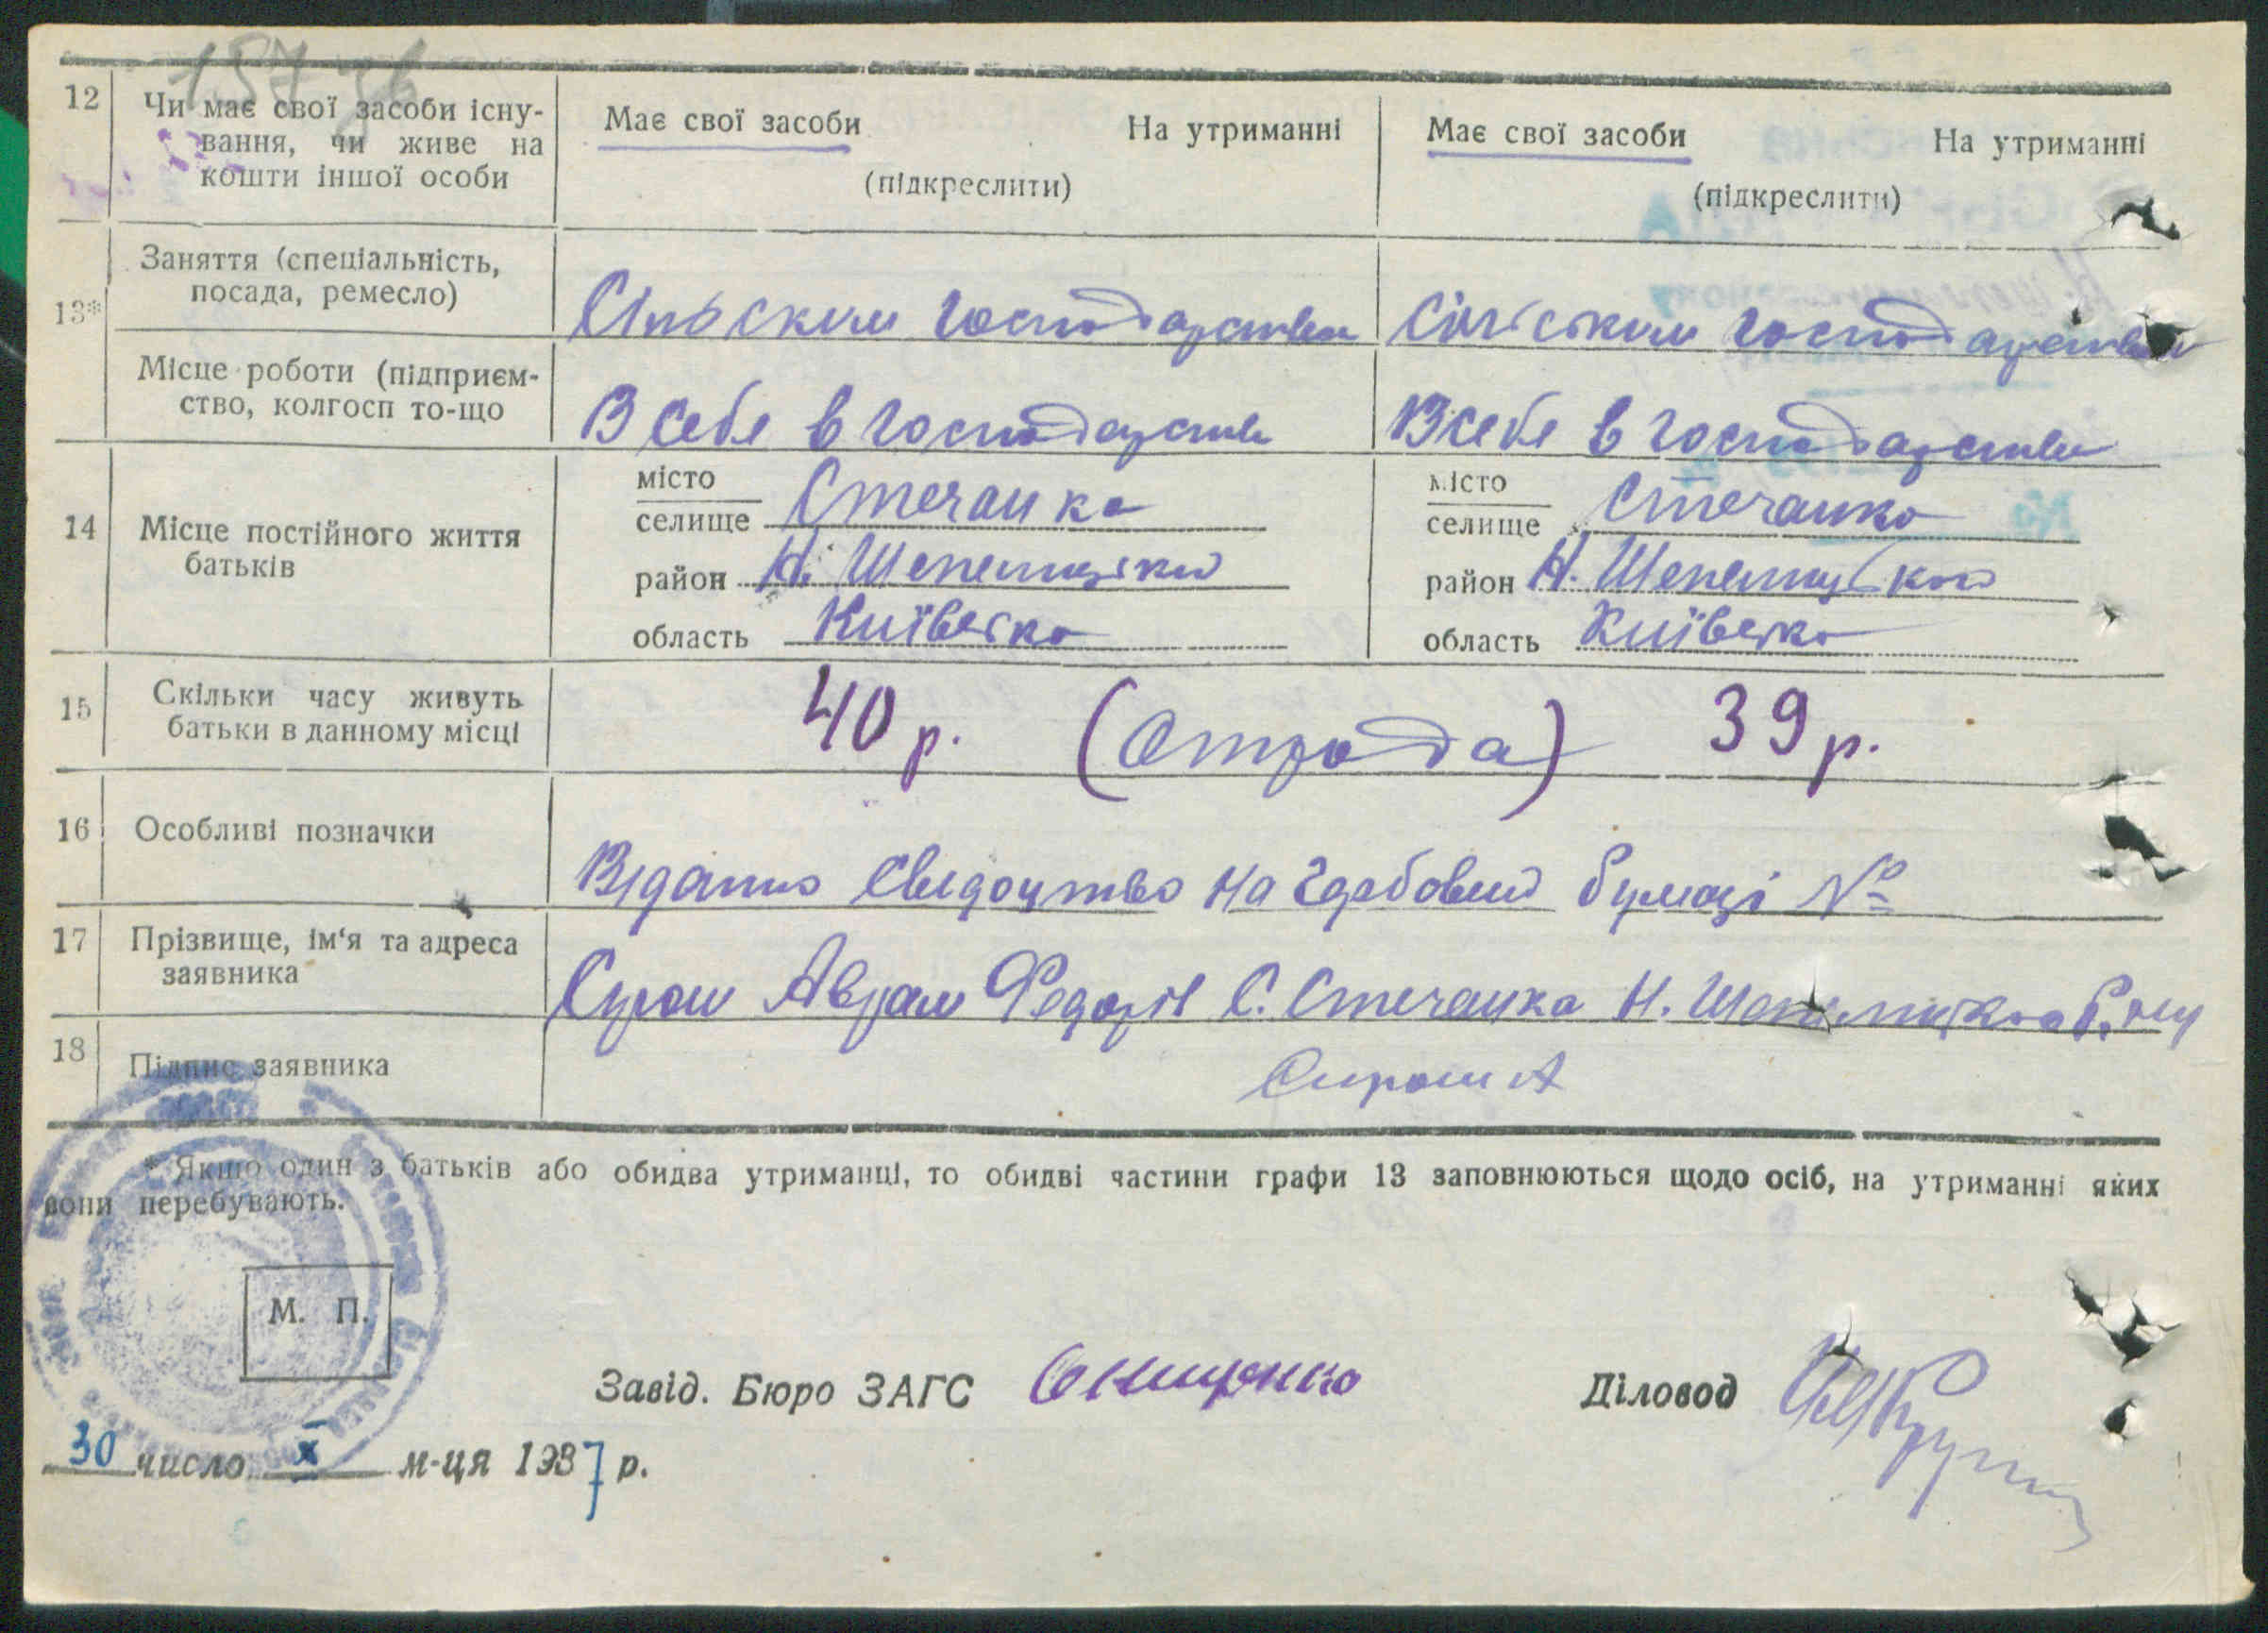 157 зв
12 Чи має свої засоби існу- Має свої засоби На утриманні Має свої засоби На утриманні
вання, чи живе на
кошти іншої особи (підкреслити) (підкреслити)
Заняття (спеціальність,
13* посада, ремесло) Сільским господарством Сільским господарством
Місце роботи (підприєм-
ство, колгосп то-що В себе в господарстві В себе в господарстві
місто місто
14 Місце постійного життя селище Стечанка селище Стечанка
батьків район Н. Шепелицький район Н. Шепелицького
область Київська область Київська
15 Скільки часу живуть 40 р. (Отрода) 39 р.
батьки в данному місці
16 Особливі позначки
Відано свидоцтво на гербовий бумазі №
17 Прізвище, ім'я та адреса
заявника Сирош Аврам Федорів С. Стечанка Н. Шепелицького
18 Підпис заявника Сирош А
* Якщо один з батьків або обидва утриманці, то обидві частини графи 13 заповнюються щодо осіб, на утриманні яких
вони перебувають.
М. П.
Завід. Бюро ЗАГС Онищенко Діловод
30 число X м-ця 1937 р.